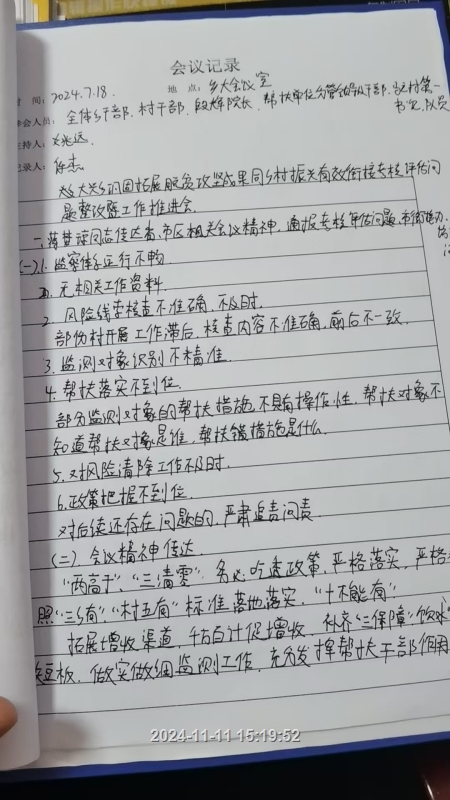 会议记录
时 间: 2024.7.18. 地 点: 乡大会议室
参会人员: 全体乡干部、村干部、殷辉院长、帮扶单位分管领导干部、驻村第一
书记、队员
主持人:
记录人:
乡巩固拓展脱贫攻坚成果同乡村振兴有效衔接考核评估问
题整改暨工作推进会.
一、同志传达省、市区相关会议精神, 通报考核评估问题.
(一)1. 监测体系运行不畅
无相关工作资料.
2. 风险线索核查不准确, 不及时.
部份村开展工作滞后, 核查内容不准确, 前后不一致.
3. 监测对象识别不精准.
4. 帮扶落实不到位.
部分监测对象的帮扶措施不具有操作性. 帮扶对象不
知道帮扶对象是谁, 帮扶措施是什么.
5. 对风险清除工作不及时.
6. 政策把握不到位.
对后续还存在问题的, 严肃追责问责
(二). 会议精神传达.
"两高于""三清零": 务必吃透政策, 严格落实, 严格
照"三乡有""村五有"标准落地落实, "十不能有"
拓展增收渠道, 千方百计促增收, 补齐"三保障"饮水
短板, 做实做细监测工作, 充分发挥帮扶干部作用
2024-11-11 15:19:52